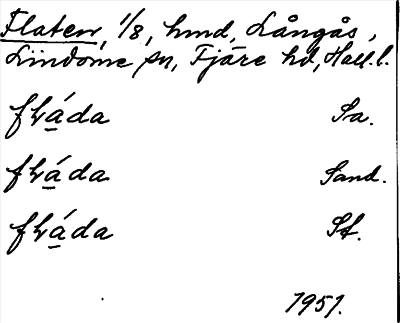 Flaten, 1/8, hmd, Långås,
Lindome sn, Fjäre hd, Hall. l.
flá̱da Sa.
flá̱da Sand.
flá̱da St.
1951.